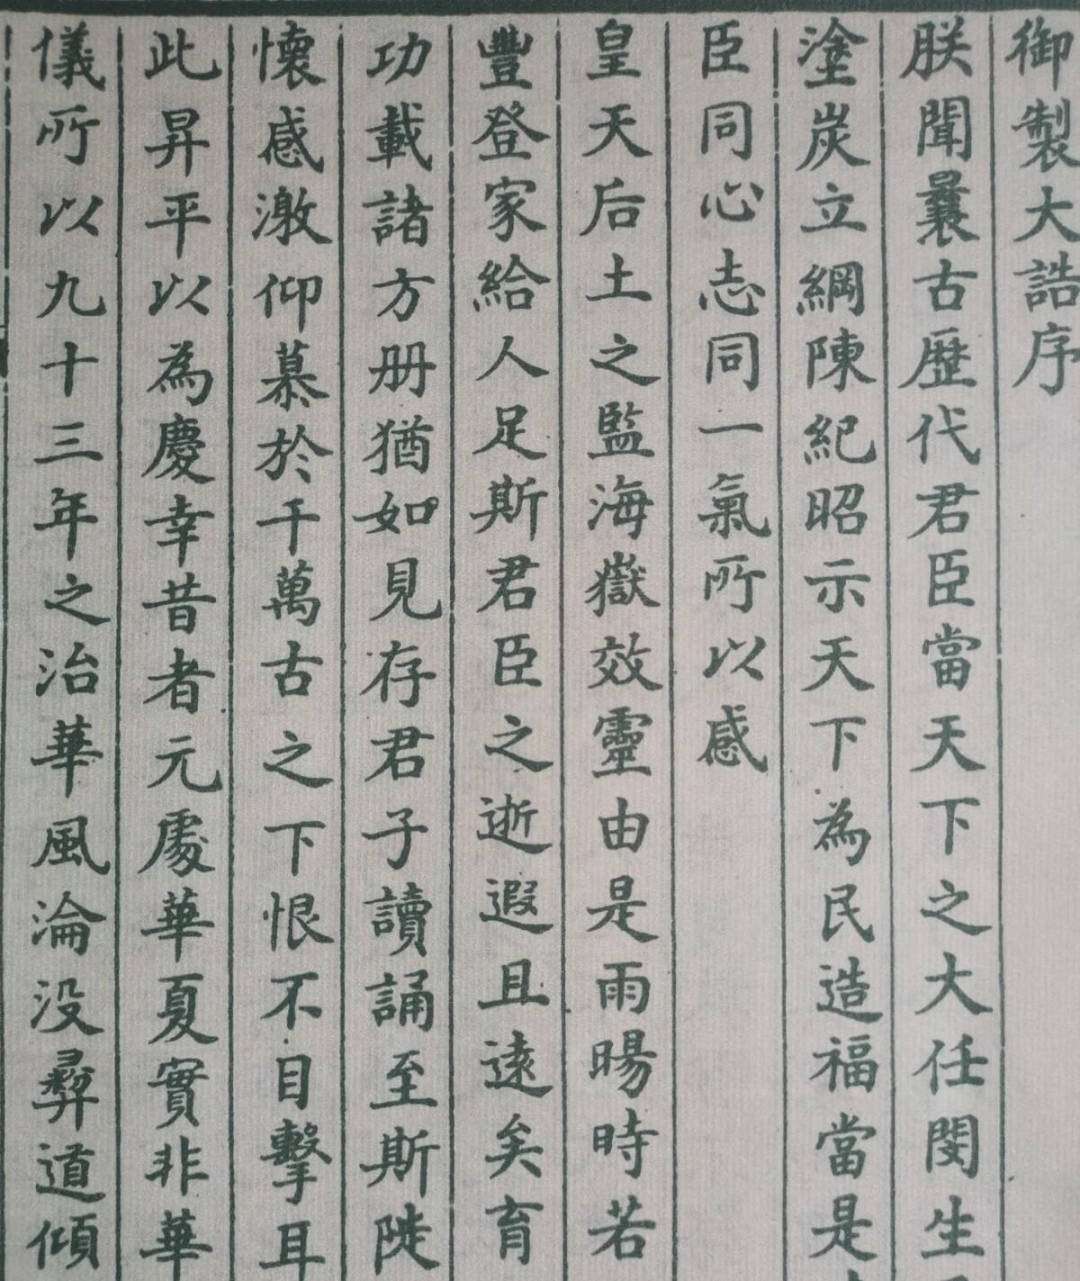 御製大誥序
朕聞曩古歷代君臣當天下之大任閔生
塗炭立綱陳紀昭示天下為民造福當是
臣同心志同一氣所以感
皇天后土之監海嶽效靈由是雨暘時若
豐登家給人足斯君臣之逝遐且遠矣育
功載諸方册猶如見存君子讀誦至斯陡
懷感激仰慕於千萬古之下恨不目擊耳
此昇平以為慶幸昔者元處華夏實非華
儀所以九十三年之治華風淪没彝道傾